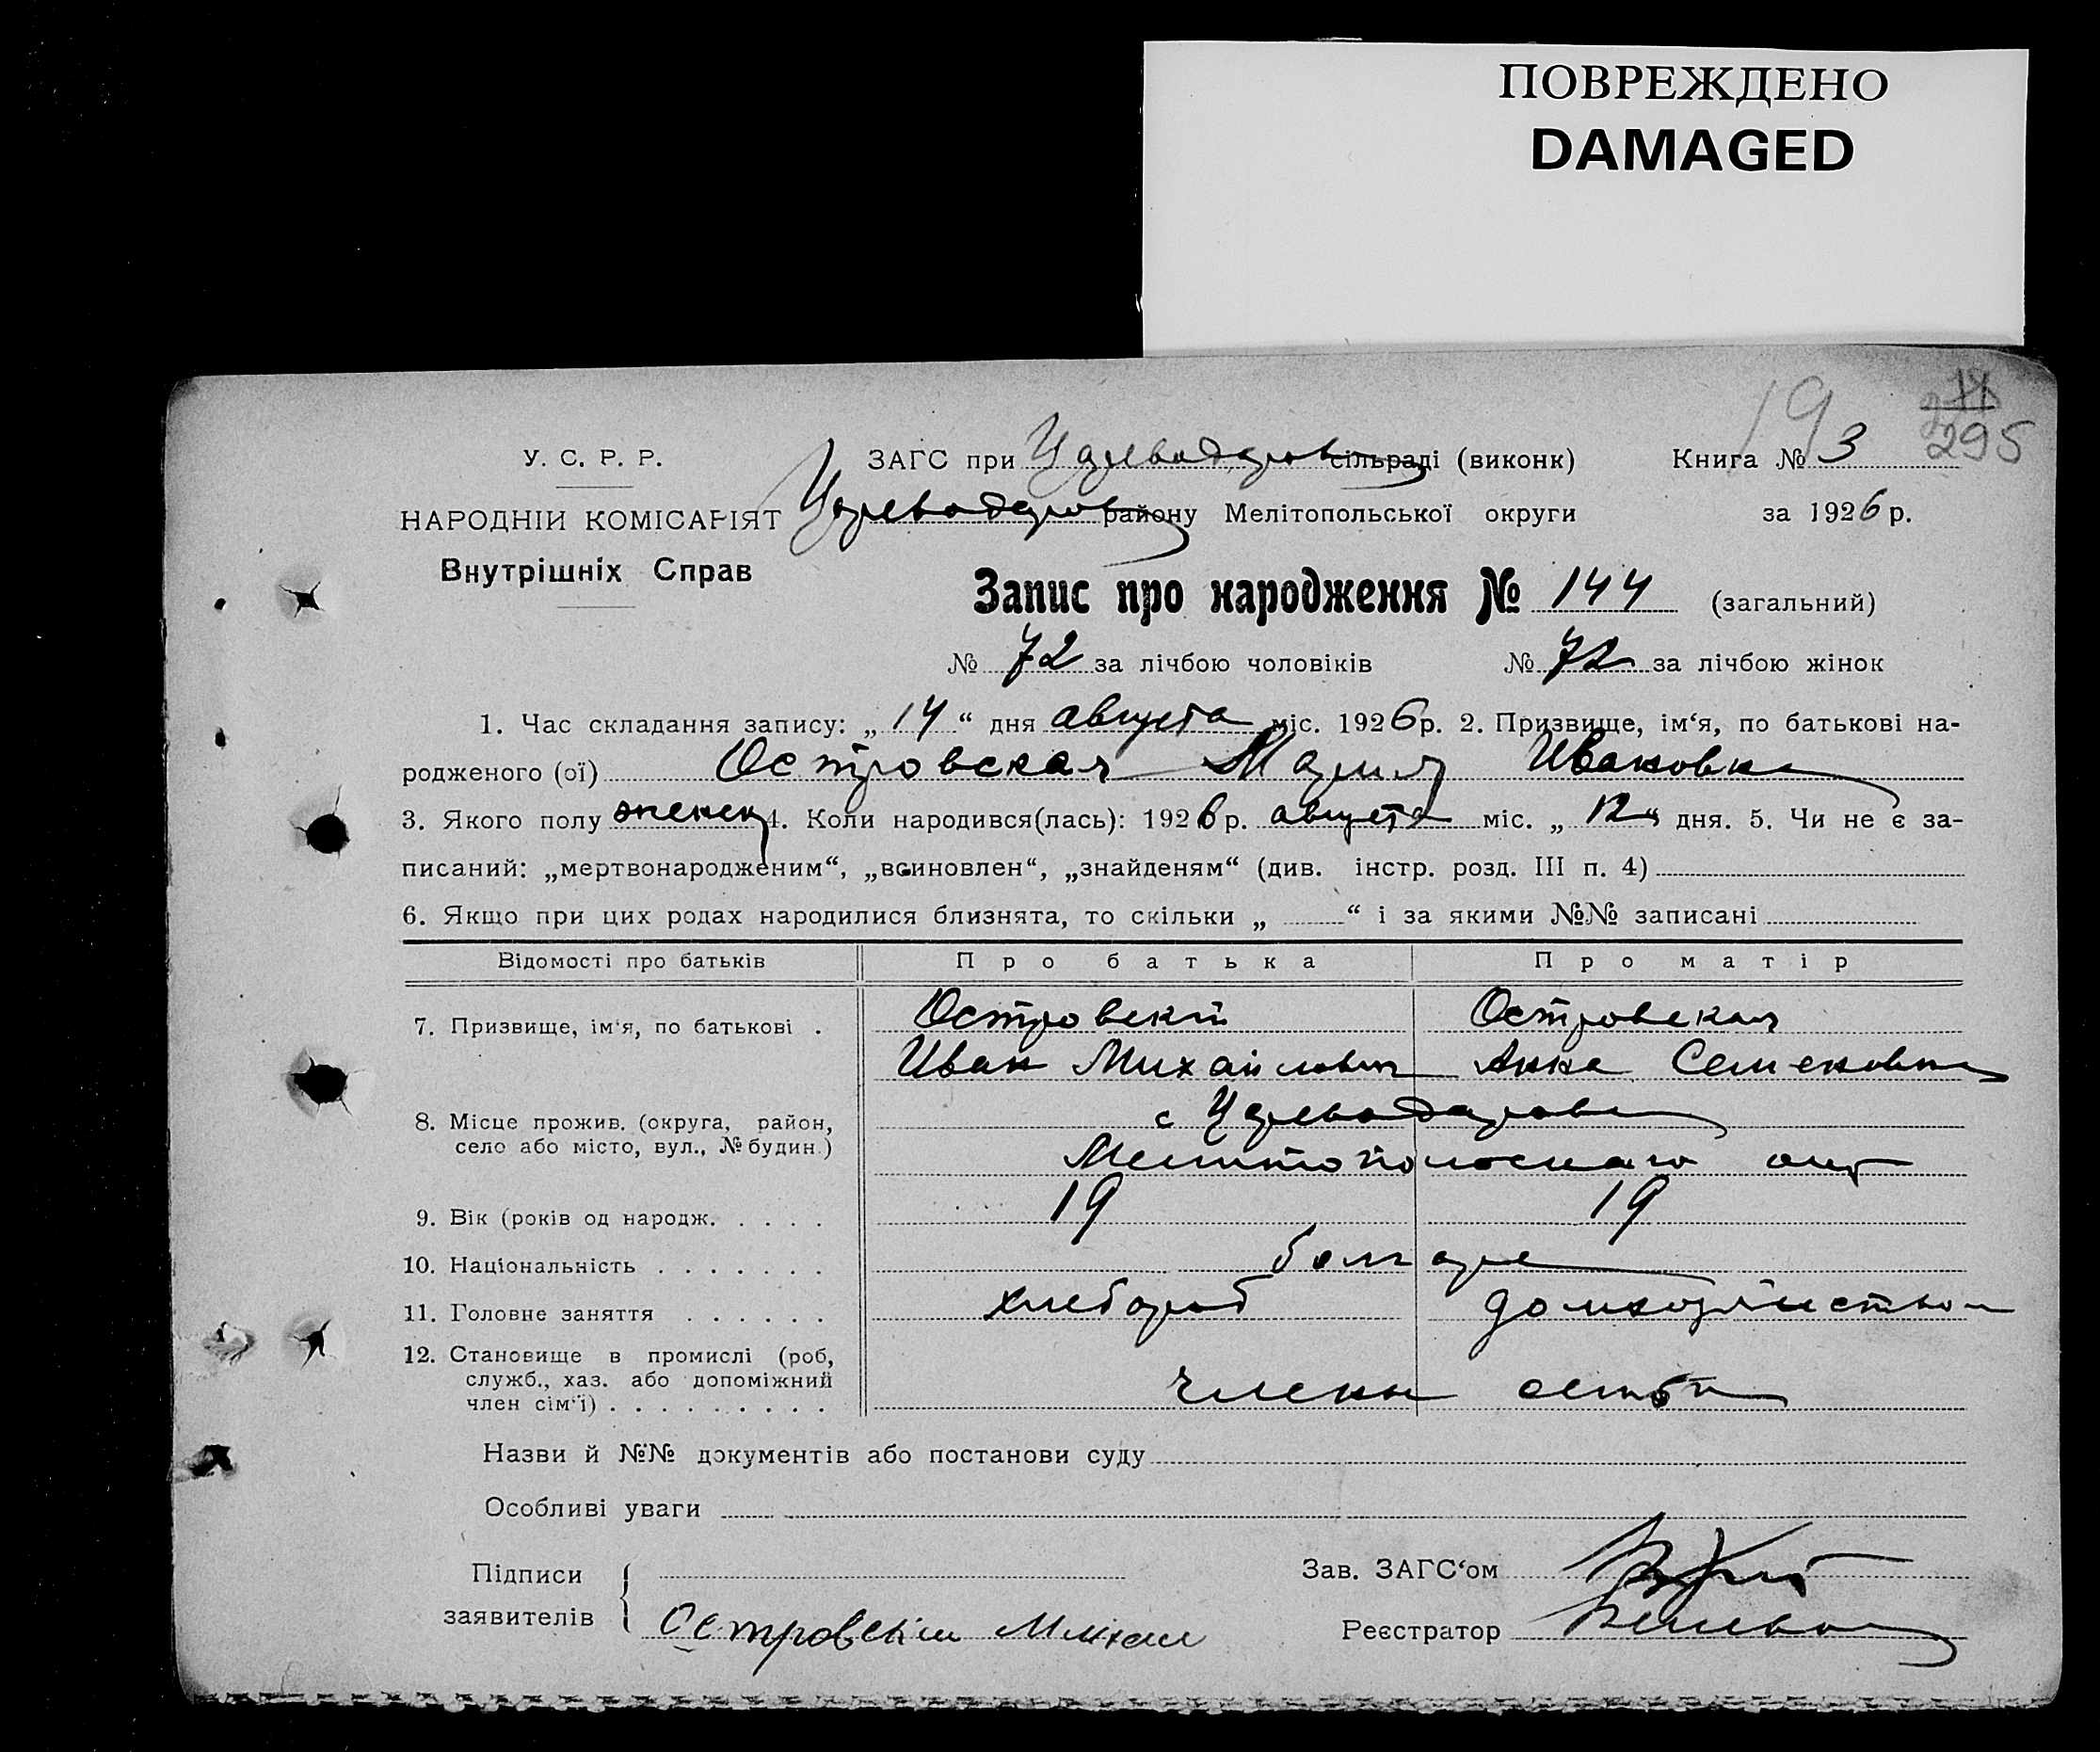 ПОВРЕЖДЕНО
DAMAGED
193
295
У. С. Р. Р.
НАРОДНІИ КОМІСАРІЯТ
Внутрішніх Справ
ЗАГС при Цареводаров сільраді (виконк) Книга № 3
Цареводаров району Мелітопольської округи за 1926 р.
Запис про народження № 144 (загальний)
№ 72 за лічбою чоловіків № 72 за лічбою жінок
1. Час складання запису: „14“ дня августа міс. 1926 р. 2. Призвище, ім‘я, по батькові на-
родженого (ої) Островская Мария Ивановна
3. Якого полу женск 4. Коли народився(лась): 1926 р. августа міс. „12“ дня. 5. Чи не є за-
писаний: „мертвонародженим“, „всиновлен“, „знайденям“ (див. інстр. розд. III п. 4)
6. Якщо при цих родах народилися близнята, то скільки „ “ і за якими №№ записані
Відомості про батьків Про батька Про матір
7. Призвище, ім‘я, по батькові . Островский Островская
Иван Михайлович Анна Семеновна
8. Місце прожив. (округа, район, село або місто, вул., № будин.) с Цареводаровка
Мелитопольскаго окр
9. Вік (років од народж. . . . . 19 19
10. Національність . . . . . . . болгаре
11. Головне заняття . . . . . . хлебороб домхозяйством
12. Становище в промислі (роб,
служб., хаз. або допоміжний
член сім‘ї) . . . . . . . . . члены семьи
Назви й №№ документів або постанови суду
Особливі уваги
Підписи
заявителів Островский Михаил
Зав. ЗАГС‘ом
Реєстратор